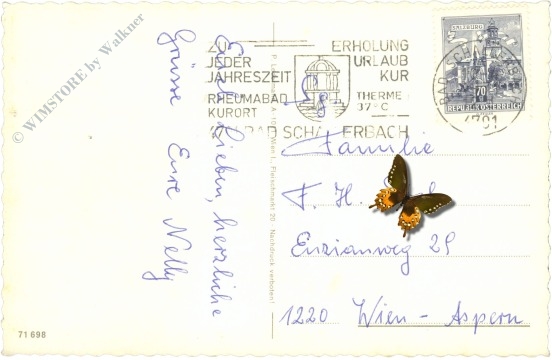 © WIMSTORE by Walkner
Euch Lieben, herzliche
Grüsse Eure Nelly
ZU
JEDER
JAHRESZEIT
RHEUMABAD
KURORT
ERHOLUNG
URLAUB
KUR
THERME
37°C
BAD SCHALLERBACH
SALZBURG
70
REPUBLIK ÖSTERREICH
4701
Familie
F. H.
Enzianweg 25
1220 Wien - Aspern
Wien I., Fleischmarkt 20 Nachdruck verboten!
71 698